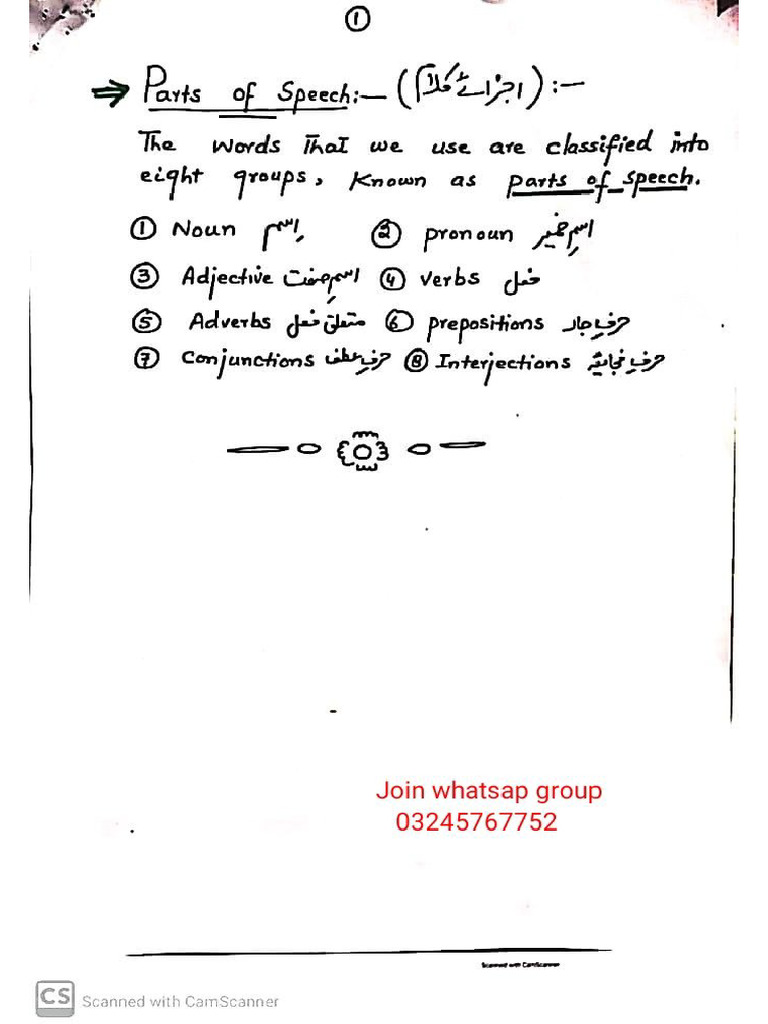 ①
⇒ Parts of Speech:— (اجزائے کلام) :—
The words That we use are classified into
eight groups, Known as parts of speech.
① Noun اسم ② pronoun اسمِ ضمیر
③ Adjective اسمِ صفت ④ verbs فعل
⑤ Adverbs متعلق فعل ⑥ prepositions حرفِ جار
⑦ Conjunctions حرفِ عطف ⑧ Interjections حرفِ فجائیہ
Join whatsap group
03245767752
Scanned with CamScanner
CS Scanned with CamScanner